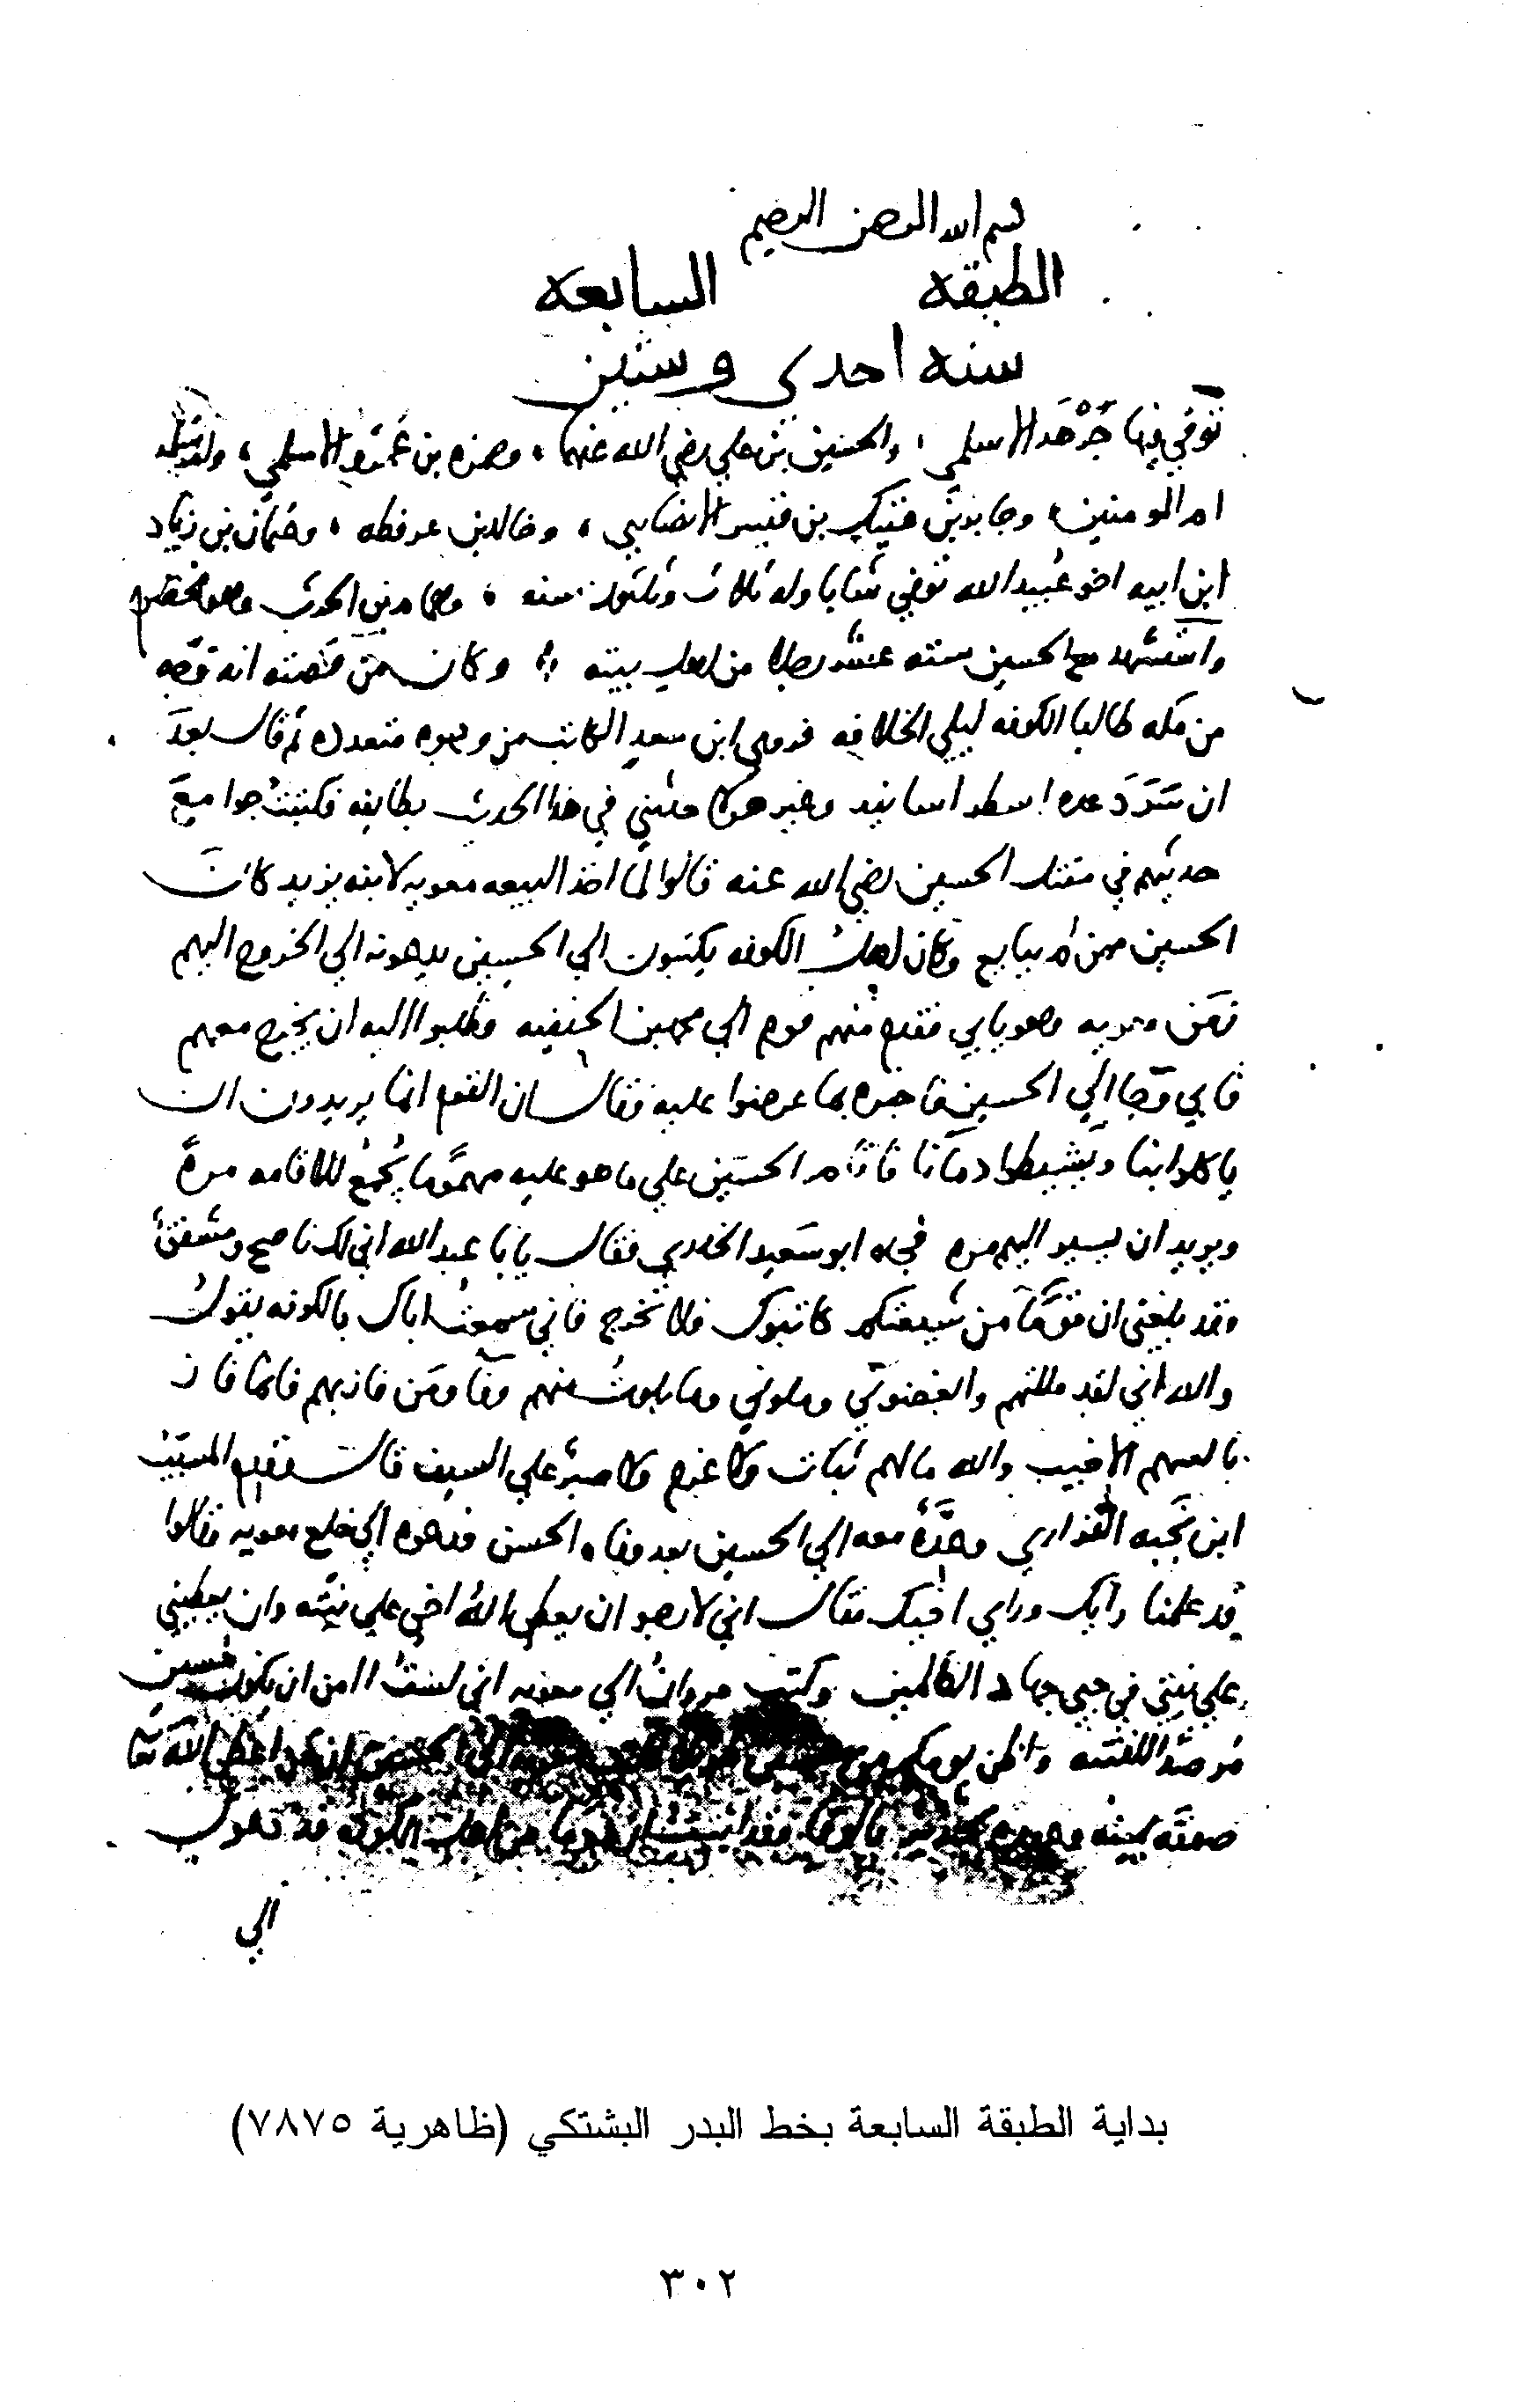 بسم الله الرحمن الرحيم
الطبقه السابعه
سنه احدى وستين
توفي فيها جرهد الاسلمي ، والحسين بن علي رضي الله عنهما ، وحمزه بن عمرو الاسلمي ، وام سلمه
ام المومنين ، وجابر بن عتيك بن قيس الانصاري ، وخالد بن عرفطه ، وعثمان بن زياد
ابن ابيه اخو عبيد الله توفي شابا وله ثلاث وثلثون سنه ، وهمام بن الحرث وهو مخضرم
واستشهد مع الحسين ستة عشر رجلا من اهل بيته وكان من قصته انه توجه
من مكه طالبا الكوفه ليلي الخلافه فروى ابن سعد الكاتب من وجوه متعدده ثم قال بعد
ان سرد عده اسطر اسانيد وغير هولا حدثني في هذا الحديث بطايفه فكتبت جوامع
حديثهم في مقتل الحسين رضي الله عنه قالوا لما اخذ البيعه معويه لابنه يزيد كان
الحسين ممن لم يبايع وكان اهل الكوفه يكتبون الي الحسين يدعونه الي الخروج اليهم
زمن معويه وهو يابي فقدم منهم قوم الي محمد بن الحنفيه وطلبوا اليه ان يخرج معهم
فابي وجا الي الحسين فاخبره بما عرضوا عليه فقال ان القوم انما يريدون ان
ياكلوا بنا ويشيطوا دمانا فاقام الحسين علي ما هو عليه مهموما يجمع للاقامه مرة
ويريد ان يسير اليهم مره فجاه ابو سعيد الخدري فقال يابا عبد الله اني لك ناصح ومشفق
وقد بلغني ان قوما من شيعتكم كاتبوك فلا تخرج فاني سمعت اباك بالكوفه يقول
والله اني لقد مللتهم وابغضوني وملوني وما بلوت منهم وفا ومن فاز بهم فانما فاز
بالسهم الاخيب والله مالهم ثبات ولا عزم ولا صبر علي السيف قال وقدم المسيب
ابن نجبه الفزاري وعدة معه الي الحسين بعد وفاه الحسن فدعوه الي خلع معويه وقالوا
قد علمنا رايك وراي اخيك فقال اني لارجو ان يعطي الله اخي علي نيته وان يعطيني
علي نيتي في حبي جهاد الظالمين وكتب مروان الي معويه اني لست امن ان يكون حسين
مرصدا للفتنه واظن يومكم من حسين طويلا فكتب معويه الي الحسين ان من اعطي الله تعا
صفقه يمينه وعهده لجدير بالوفا وقد انبئت ان قوما من اهل الكوفه قد دعوك
الي
بداية الطبقة السابعة بخط البدر البشتكي (ظاهرية ٧٨٧٥)
٣٠٢